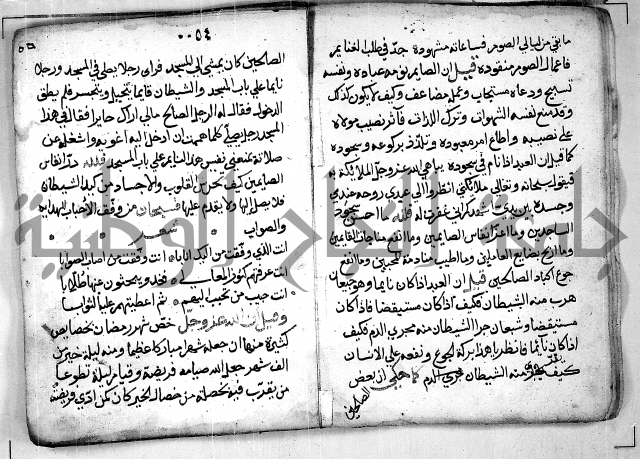 ما بقي من ليالي الصوم فساعاته مشهودة جد في طلب الغنايم
فاعمال الصوم منقودة قيل ان الصايم نومه عبادة ونفسه
تسبيح ودعاه مستجاب وعمله مضاعف وكيف لا يكون كذلك
وقد منع نفسه الشهوات وترك اللذات فآثر نصيب مولاه
على نصيبه واطاع امر معبوده وتلذذ بركوعه وسجوده
كما قيل ان العبد اذا نام في سجوده يباهي الله عز وجل الملايكة به
فيقول سبحانه وتعالى ملائكتي انظروا الى عبدي روحه عندي
وجسده بين يدي اشهدكم اني غفرت له فلله ما احسن سجود
الساجدين وما اعز انفاس الصايمين وما انفع مناجات القايمين
وما اربح بضايع العاملين وما اطيب منادمة المحبين وما انفع
جوع اكباد الصالحين قيل ان العبد اذا كان نايما وهو جيعان
هرب منه الشيطان فكيف اذا كان مستيقضا فاذا كان
مستيقضا وشبعان جرا الشيطان منه مجري الدم فكيف
اذا كان نايما فانظر يا هذا بركة الجوع ونفعه على الانسان
كيف منه الشيطان مجري الدم كما حكي ان بعض
الصالحين
٠٠٥٤
٥٥
الصالحين كان يمضي الى المسجد فراى رجلا يصلي في المسجد ورجلا
نايما على باب المسجد والشيطان قايما يتخيل ويتحسر فلم يطق
الدخول فقال له الرجل الصالح مالي اراك حايرا فقال في هذا
المسجد رجل يصلي كلما هممت ان ادخل اليه اغويه واشغله عن
صلاته يمنعني نفس هذا النايم على باب المسجد فلله در انفاس
الصايمين كيف تحرس القلوب والاجساد من كيد الشيطان
فلا يصل اليها ولا يقدم عليها فسبحان من وفق الاحباب للهداية
والصواب شعر
انت الذي وفقت من اليك انابا انت وفقت من اصاب الصوابا
انت عرفتهم كنوز المعالي فغدو يبحثون عنها طلابا
انت حبب من تحبب اليهم ثم اعطيتهم عليها الثوابا
وقيل ان الله عز وجل خص شهر رمضان بخصايص
كثيرة منها ان جعله شهر مباركا عظيما ومنه ليلة خير من
الف شهر جعل الله صيامه فريضة وقيام ليله تطوعا
من تقرب فيه بخصلة من خصال الخير كان كمن ادى فريضة
جامعة النجاح الوطنية